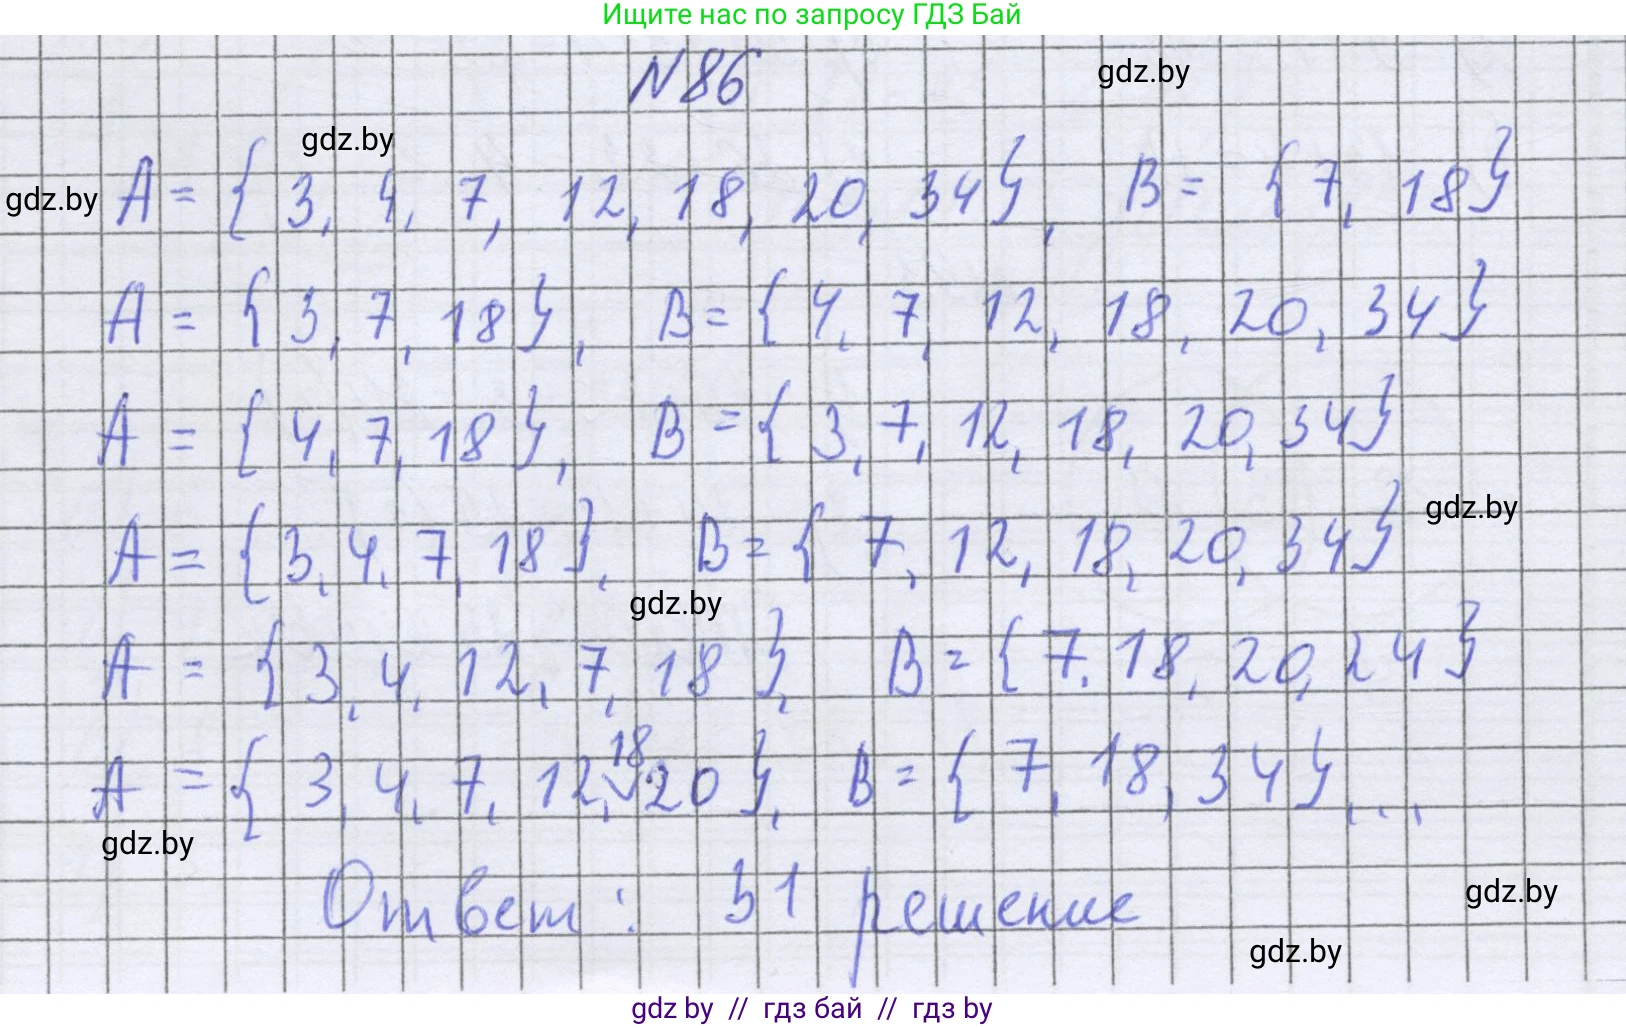 Ищите нас по запросу ГДЗ Бай
N86
gdz.by
gdz.by
gdz.by
A = { 3, 4, 7, 12, 18, 20, 34}, B = {7, 18}
A = {3, 7, 18}, B = {4, 7, 12, 18, 20, 34}
A = {4, 7, 18}, B = {3, 7, 12, 18, 20, 34}
gdz.by
A = {3, 4, 7, 18}, B = { 7, 12, 18, 20, 34}
gdz.by
A = {3, 4, 12, 7, 18}, B = {7, 18, 20, 24}
A = {3, 4, 7, 12, 18 20}, B = {7, 18, 34},...
gdz.by
Ответ: 31 решение
gdz.by
gdz.by
gdz by // гдз бай // гдз by